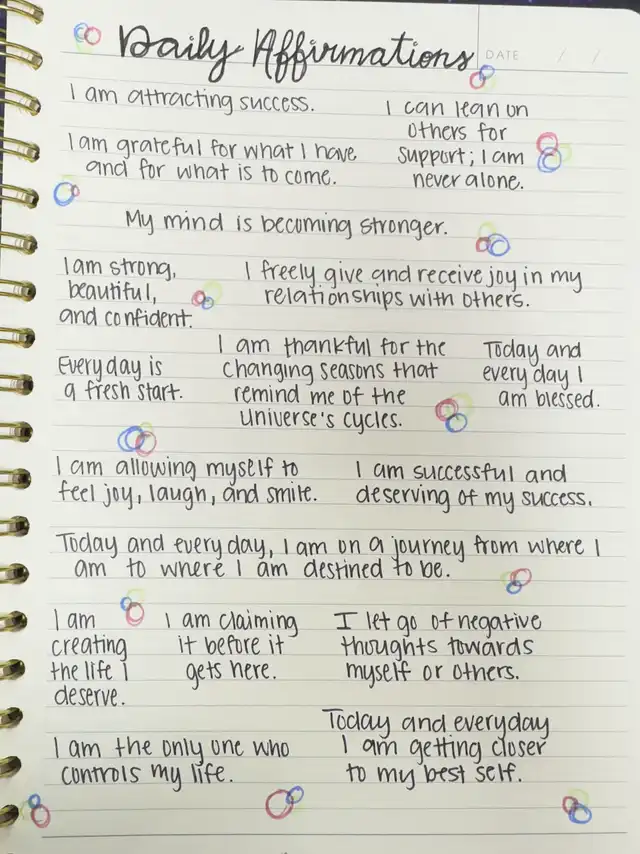 Daily Affirmations
DATE / /
I am attracting success.
I am grateful for what I have
and for what is to come.
I can lean on
others for
support; I am
never alone.
My mind is becoming stronger.
I am strong,
beautiful,
and confident.
I freely give and receive joy in my
relationships with others.
Everyday is
a fresh start.
I am thankful for the
changing seasons that
remind me of the
Universe's cycles.
Today and
every day I
am blessed.
I am allowing myself to
feel joy, laugh, and smile.
I am successful and
deserving of my success.
Today and everyday, I am on a journey from where I
am to where I am destined to be.
I am
creating
the life I
deserve.
I am claiming
it before it
gets here.
I let go of negative
thoughts towards
myself or others.
I am the only one who
controls my life.
Today and everyday
I am getting closer
to my best self.